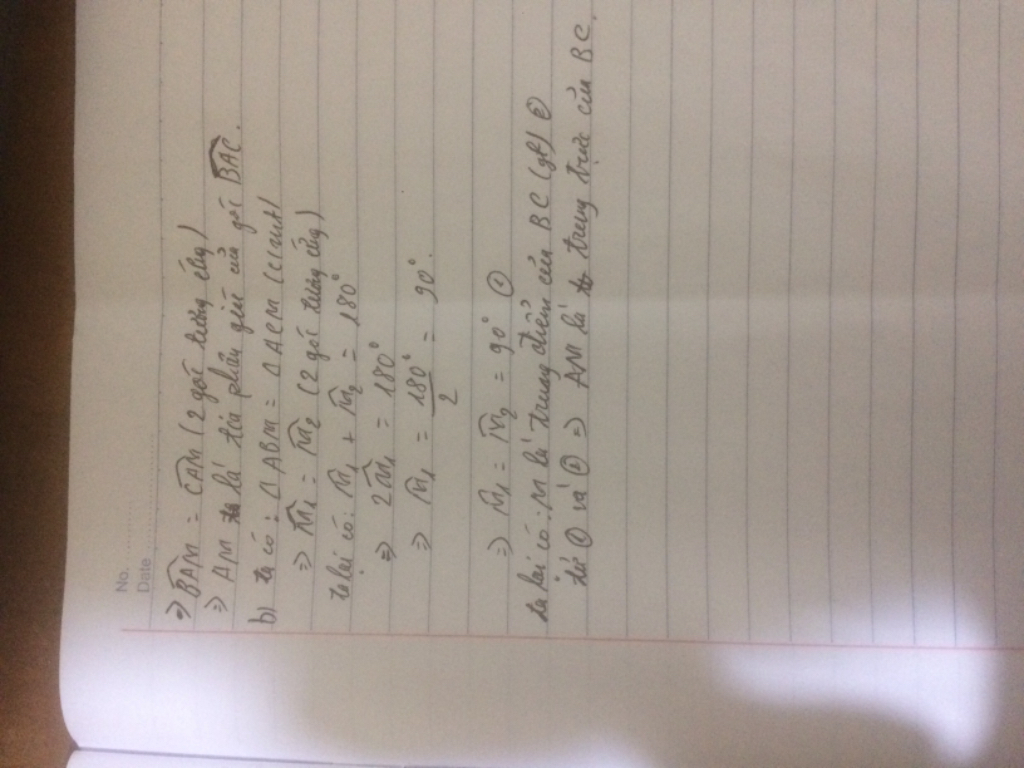 No. ............
Date ............
=> BAM = CAM (2 góc tương ứng)
=> AM là tia phân giác của góc BAC.
b) ta có: Δ ABM = Δ ACM (cmt)
=> M̂1 = M̂2 (2 góc tương ứng)
ta lại có: M̂1 + M̂2 = 180°
=> 2M̂1 = 180°
=> M̂1 = 180°/2 = 90°.
=> M̂1 = M̂2 = 90° ①
ta lại có: M là trung điểm của BC (gt) ②
từ ① và ② => AM là trung trực của BC.